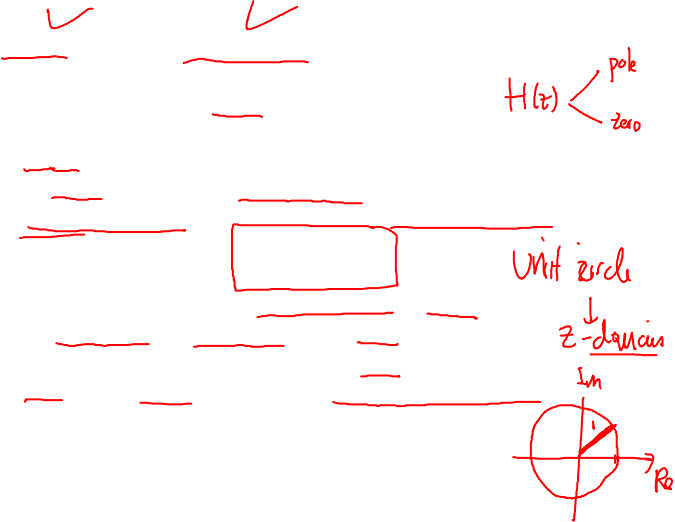 pole
H(z)
zero
Unit circle
z-domain
Im
1
Re